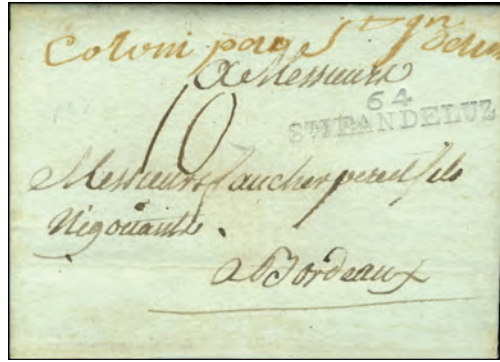 Coloni par St Jn de Lu
A Messieurs
64
ST JEAN DE LUZ
10
Messieurs Faucher pere et fils
Négotiants.
a Bordeaux